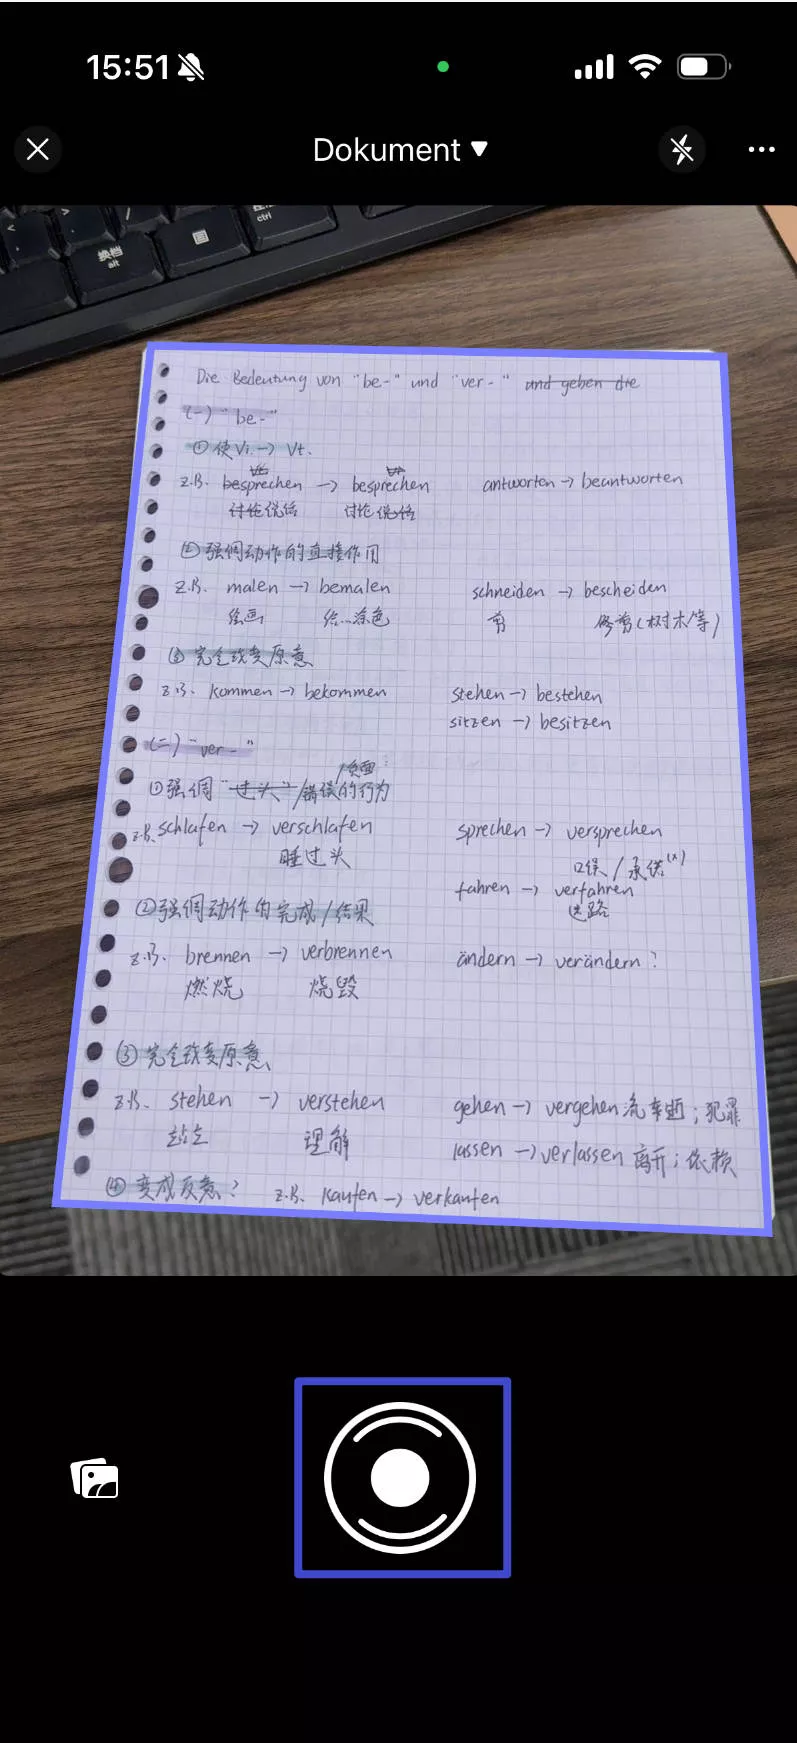 15:51
Dokument
换档
alt
ctrl
Die Bedeutung von "be-" und "ver-" und geben die
(一) "be-"
① 使Vi. → Vt.
z.B. besprechen → besprechen antworten → beantworten
讨论说话 讨论说话
② 强调动作的直接作用
z.B. malen → bemalen schneiden → bescheiden
绘画 给...涂色 剪 修剪(树木等)
③ 完全改变原意
z.B. kommen → bekommen stehen → bestehen
sitzen → besitzen
(二) "ver-"
/负面
① 强调"过头"/错误的行为
z.B. schlafen → verschlafen sprechen → versprechen
睡过头 口误/承诺(x)
fahren → verfahren
迷路
② 强调动作的完成/结果
z.B. brennen → verbrennen ändern → verändern?
燃烧 烧毁
③ 完全改变原意
z.B. stehen → verstehen gehen → vergehen 流逝;犯罪
站立 理解 lassen → verlassen 离开;依赖
④ 变成反意? z.B. kaufen → verkaufen